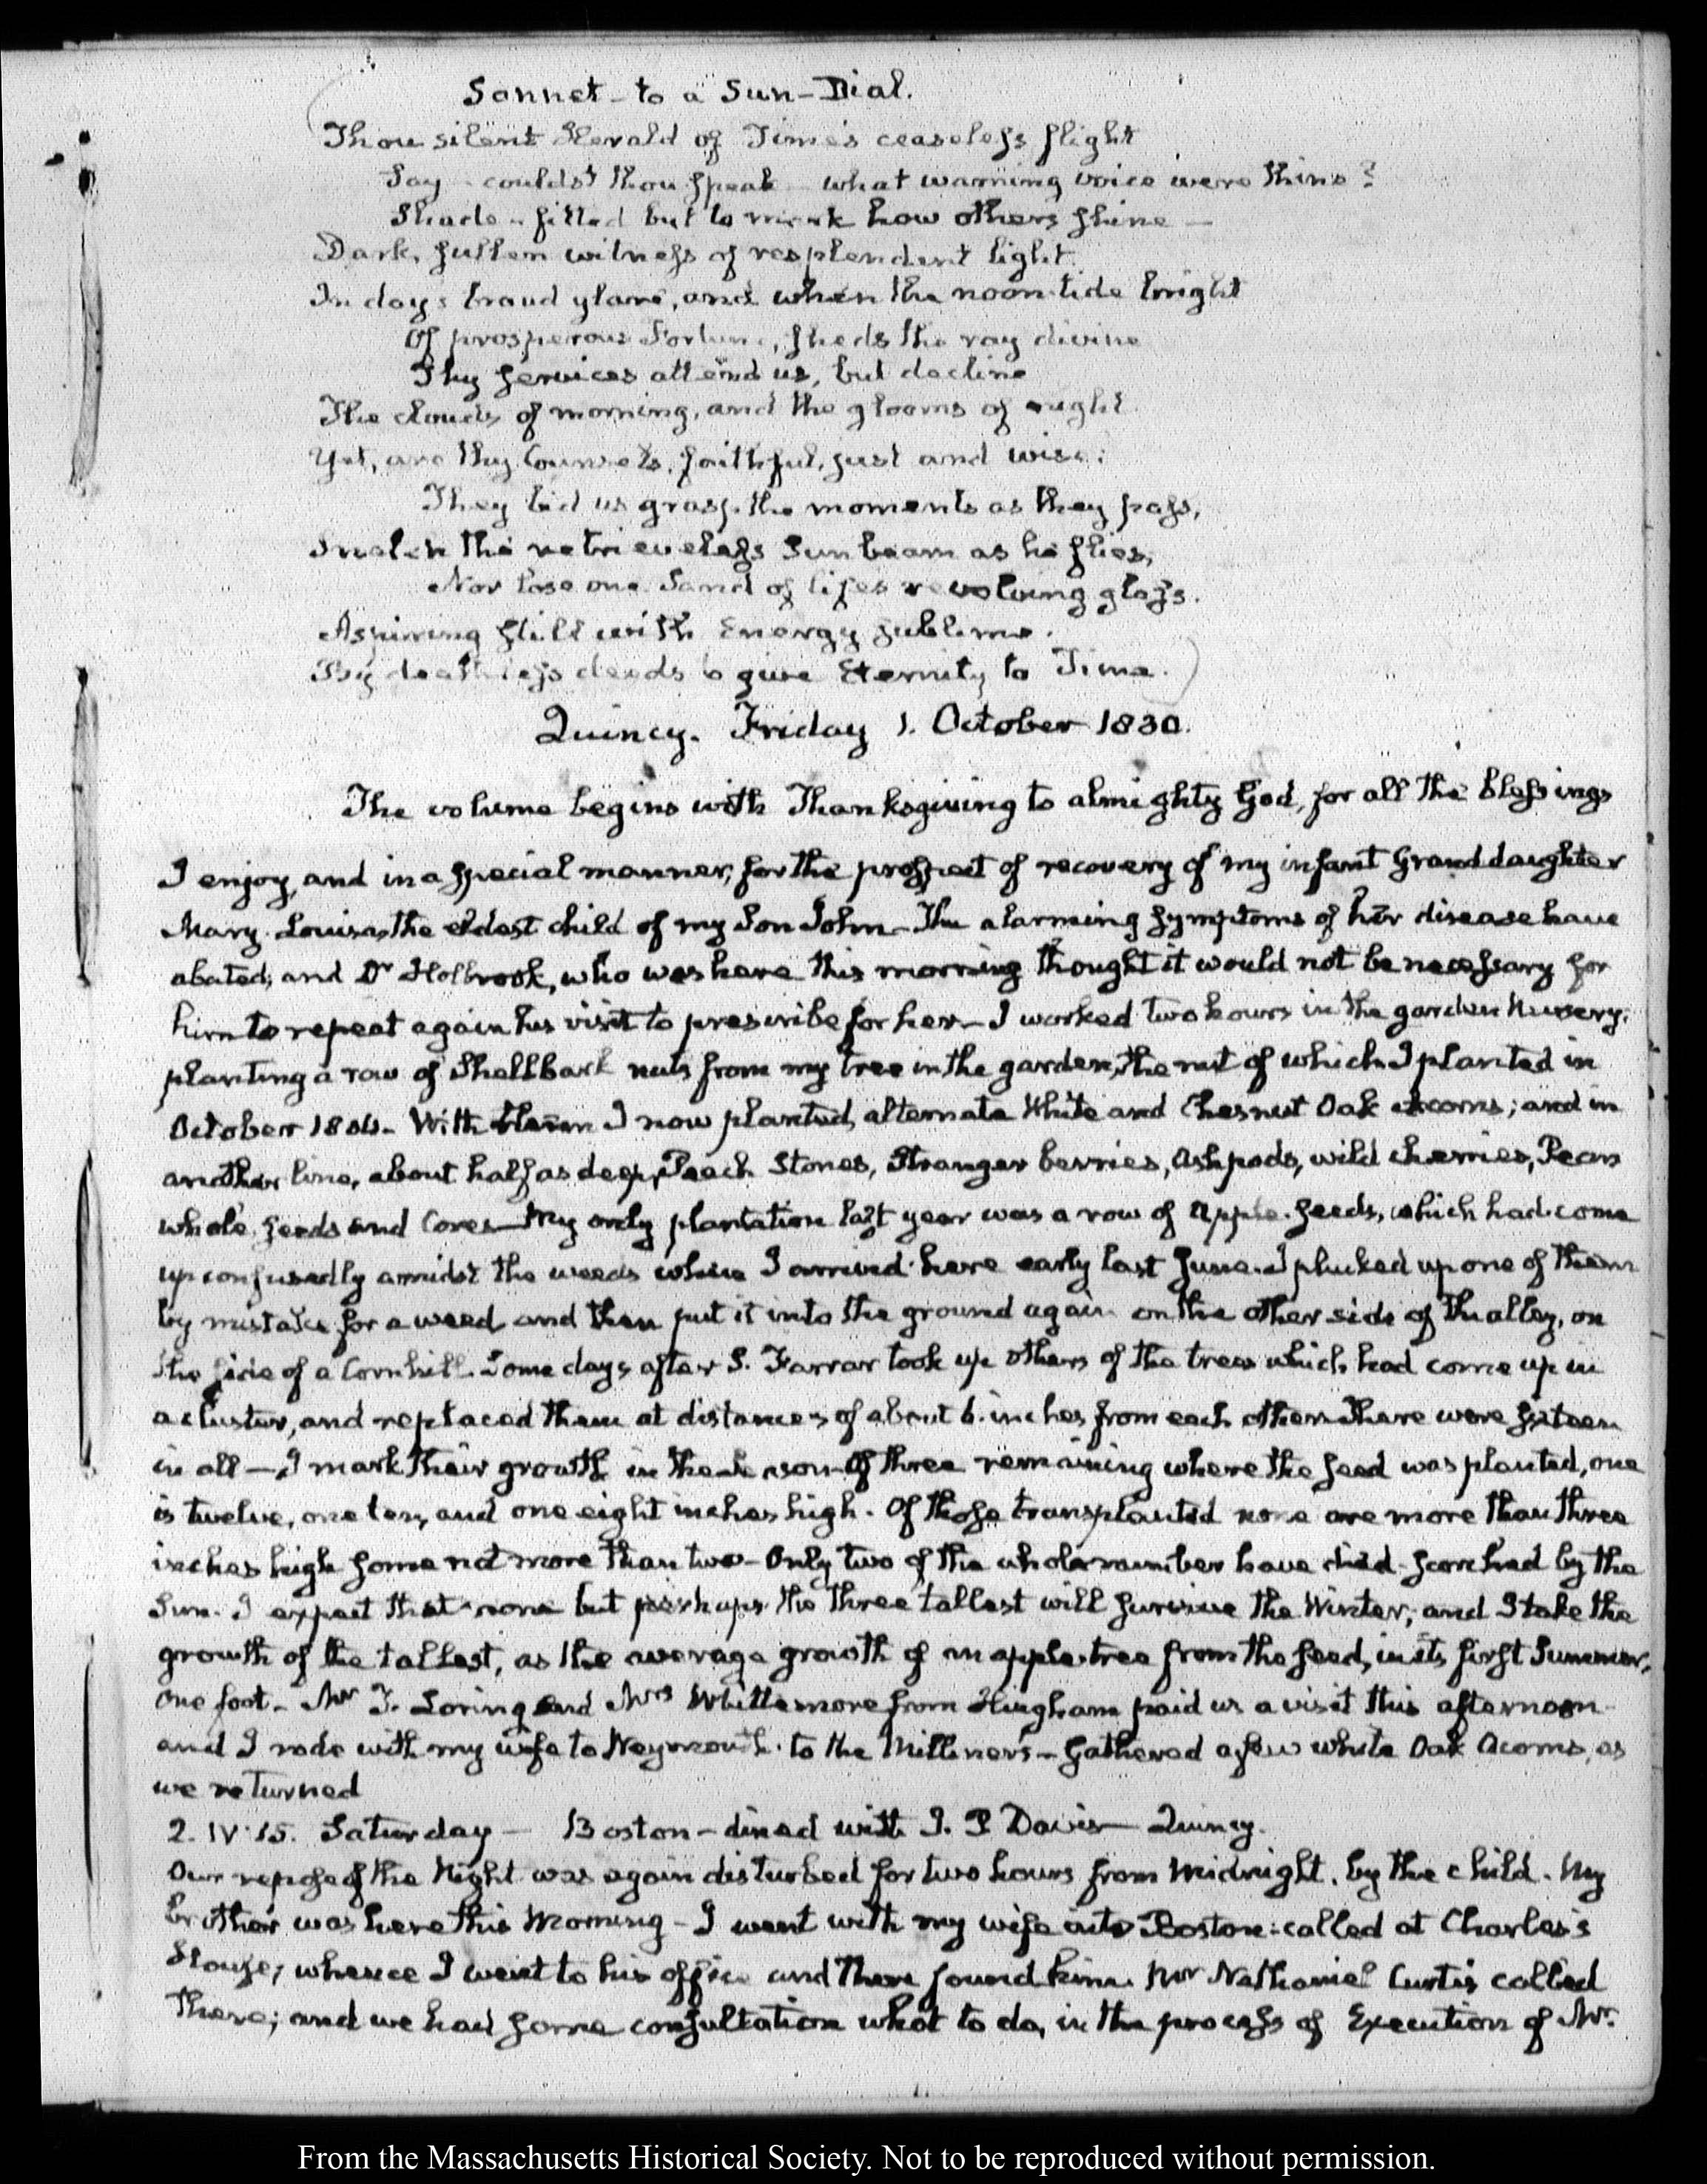 Sonnet - to a Sun-Dial.
Thou silent Herald of Time's ceaseless flight
Say - couldst thou speak - what warning voice were thine?
Shade - fitted but to mark how others shine -
Dark, sullen witness of resplendent light.
In day's broad glare, and when the noontide bright
Of prosperous Fortune, sheds the ray divine
Thy services attend us, but decline
The clouds of morning, and the glooms of night.
Yet, are thy Counsels, faithful, just and wise:
They bid us grasp the moments as they pass,
Snatch the retrieveless Sunbeam as he flies,
Nor lose one Sand of lifes revolving glass.
Aspiring still with Energy sublime.
By deathless deeds to give Eternity to Time.
Quincy. Friday 1. October 1830.
The volume begins with Thanksgiving to almighty God, for all the blessings
I enjoy, and in a special manner, for the prospect of recovery of my infant Granddaughter
Mary Louisa, the eldest child of my Son John - The alarming symptoms of her disease have
abated; and Dr Holbrook, who was here this morning thought it would not be necessary for
him to repeat again his visit to prescribe for her - I worked two hours in the garden Nursery;
planting a row of Shellbark nuts from my tree in the garden, the nut of which I planted in
October 1804 - With them I now planted, alternate White and Chesnut Oak acorns; and in
another line, about half as deep, Peach Stones, Stranger berries, Ash pods, wild cherries, Pears
whole, seeds and Cores - My only plantation last year was a row of Apple-seeds, which had come
up confusedly amidst the weeds when I arrived here early last June. I plucked up one of them
by mistake for a weed and then put it into the ground again on the other side of the alley, on
the side of a Cornhill. Some days after S. Farrar took up others of the trees which had come up in
a cluster, and replaced them at distances of about 6. inches from each other. There were sixteen
in all - I mark their growth in the season - Of three remaining where the seed was planted, one
is twelve, one ten, and one eight inches high. Of those transplanted none are more than three
inches high some not more than two - Only two of the whole number have died - scorched by the
Sun. I expect that none but perhaps the three tallest will survive the Winter; and I take the
growth of the tallest, as the average growth of an apple-tree from the seed, in its first Summer,
one foot - Mr T. Loring and Mrs Whittemore from Hingham paid us a visit this afternoon
and I rode with my wife to Weymouth. to the Milliner's - Gathered a few white Oak Acorns, as
we returned
2. IV:15. Saturday - Boston - dined with I. P Davis - Quincy.
Our repose of the Night was again disturbed for two hours from Midnight, by the child. My
brother was here this Morning - I went with my wife into Boston: called at Charles's
House; whence I went to his office and there found him. Mr Nathaniel Curtis called
there; and we had some consultation what to do, in the process of Execution of Mr.
From the Massachusetts Historical Society. Not to be reproduced without permission.